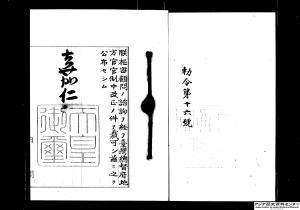 勅令第十六號
朕樞密顧問ノ諮詢ヲ經テ臺灣總督府地
方官官制中改正ノ件ヲ裁可シ茲ニ之ヲ
公布セシム
嘉仁
天皇
御璽
アジア歴史資料センター